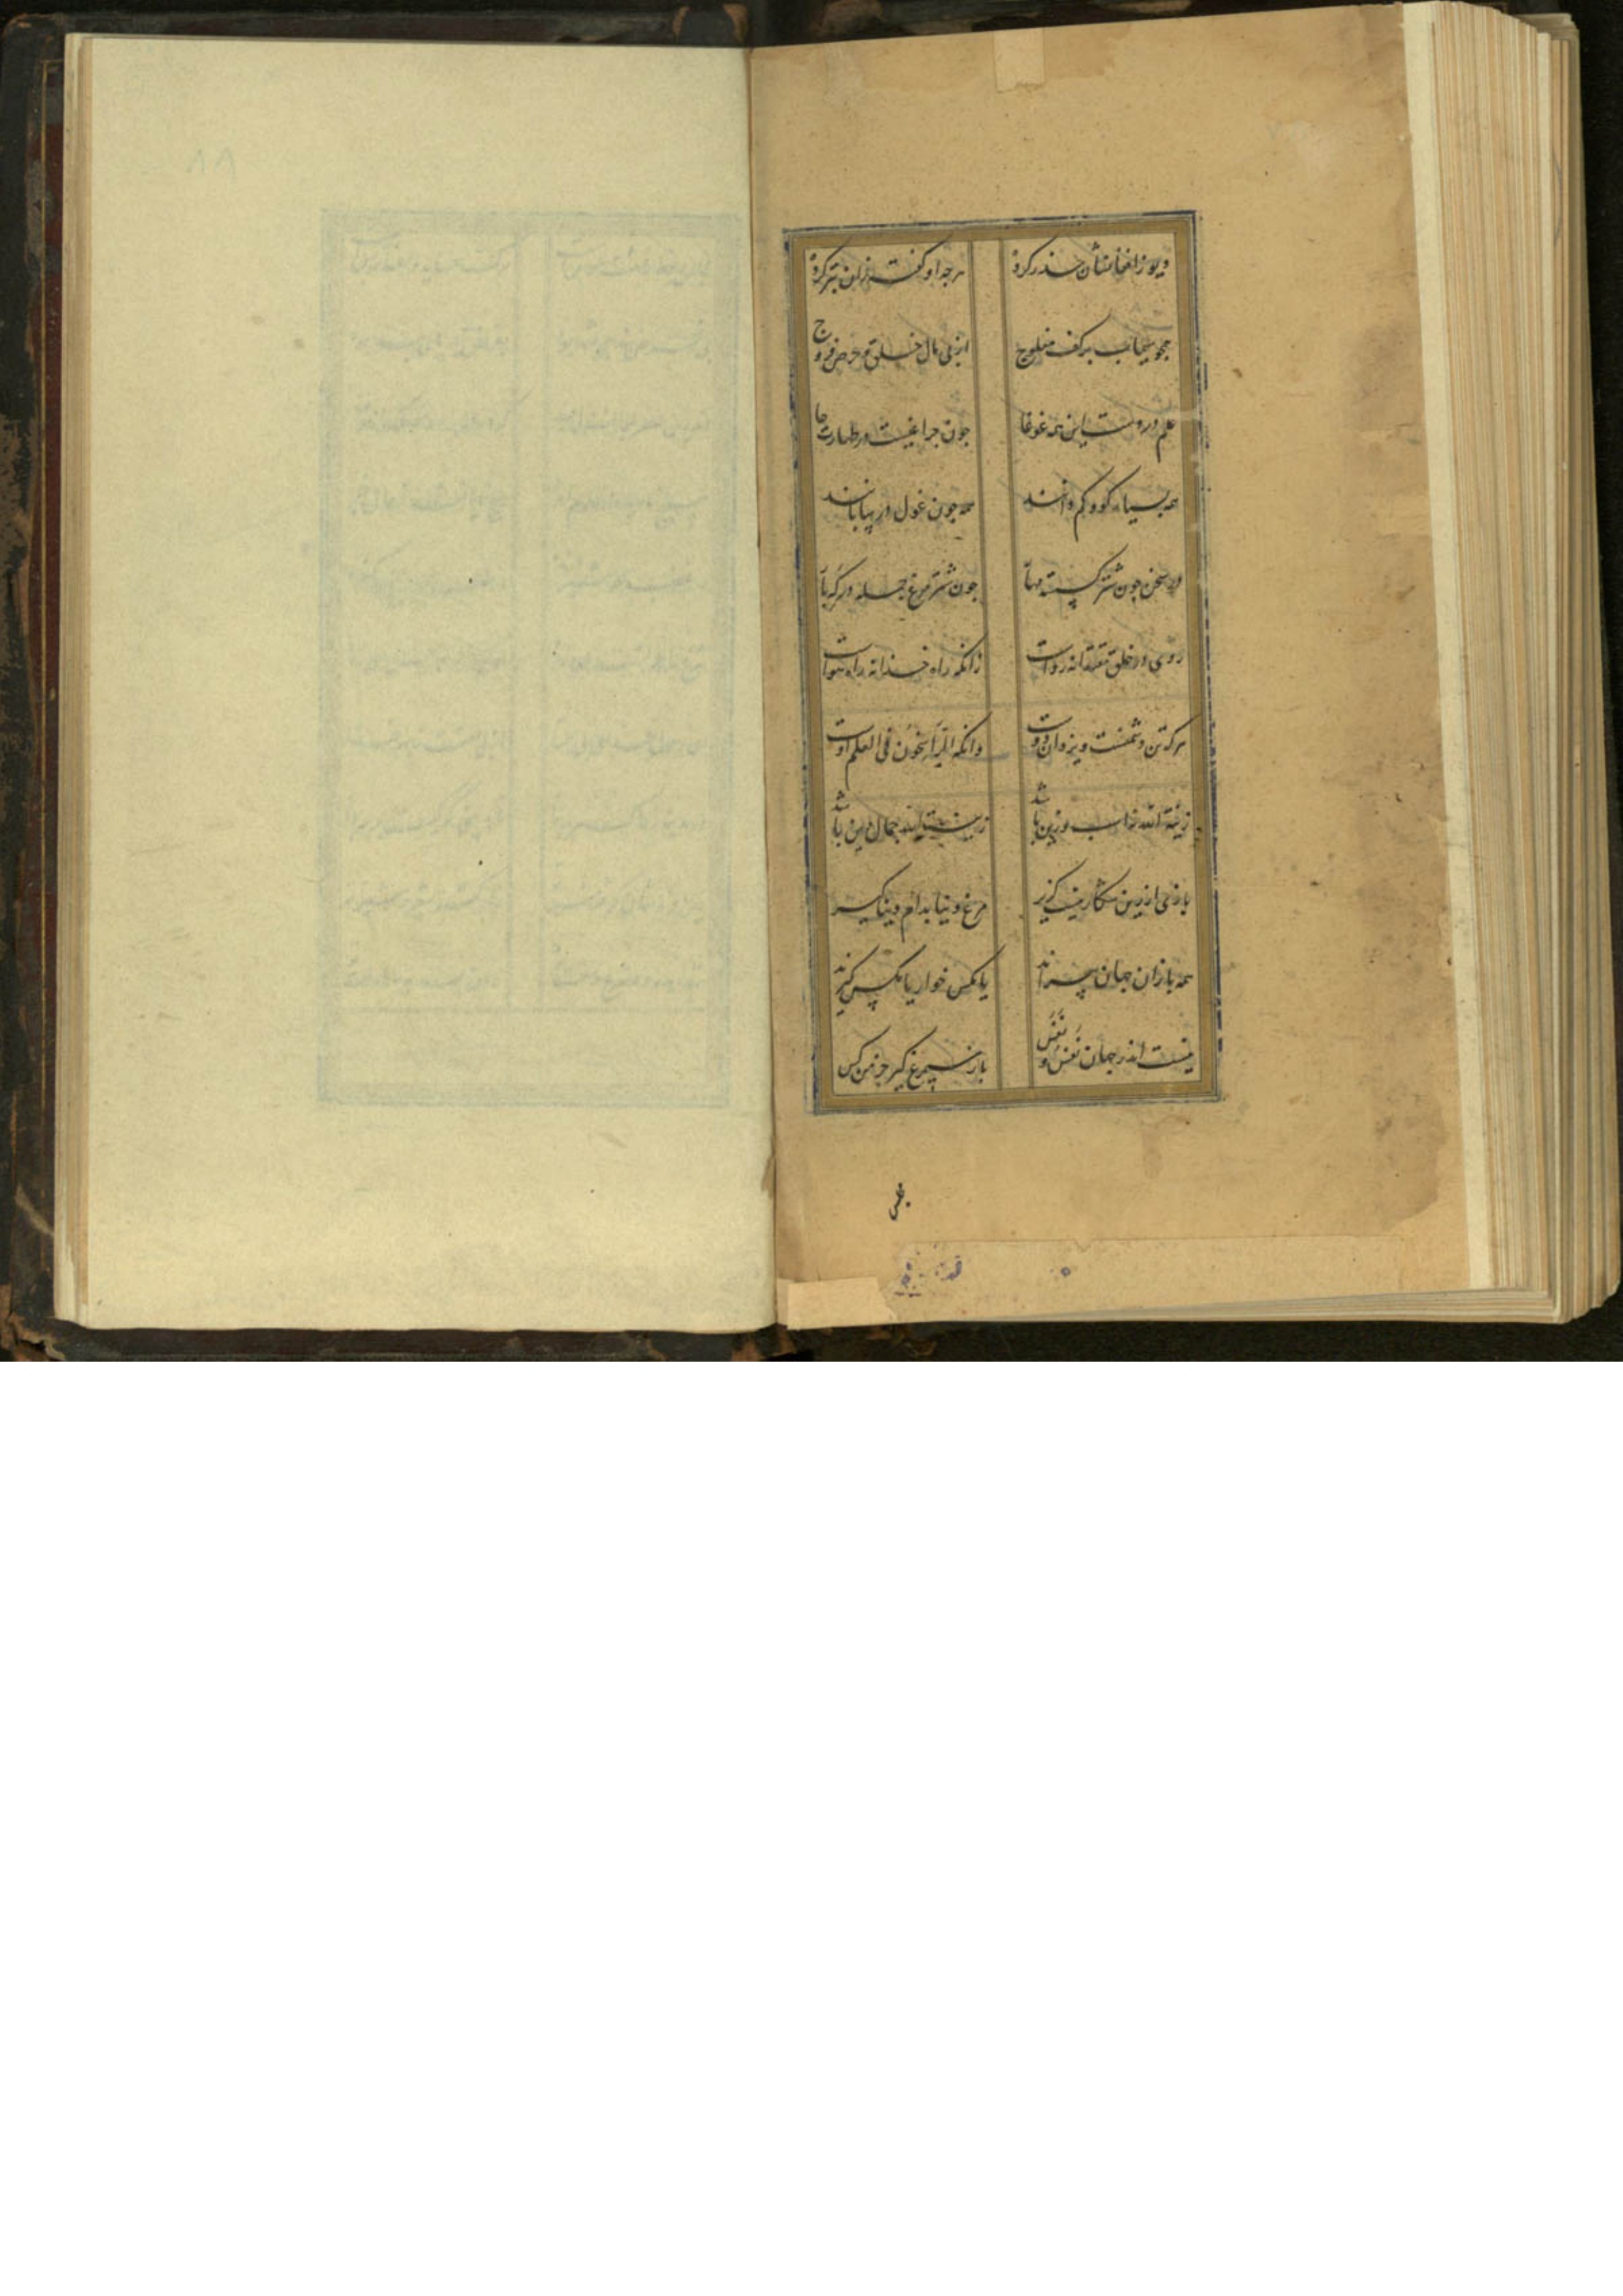 دیو ز افعالشان حذر کرده هرچه او گفت زان بتر کرده
همچو سیماب بر کف مفلوج از پی مال خلق و حرص فروج
علم در دست این همه غوغا چون چراغیست در طهارت جا
همه بسیار گو و کم دانند همه چون غول در بیابانند
در سخن چون شتر گسسته مهار چون شترمرغ جمله در گه بار
روی در خلق مقتدا نه رواست زانکه راه خدا نه راه هواست
هرکه تن دشمنست و یزدان دوست دانکه الرّاسخون فی العلم اوست
زینة الله نه اسب و زین باشد زینت الله جمال دین باشد
بازی ازین شکار نیست گزیر مرغ دنیا بدام دنیا گیر
همه بازان جهان پیراند یا مگس خوار یا مگس گیرند
نیست اندر جهان نَفس و نَفَس باز سیمرغ گیر جز من کس